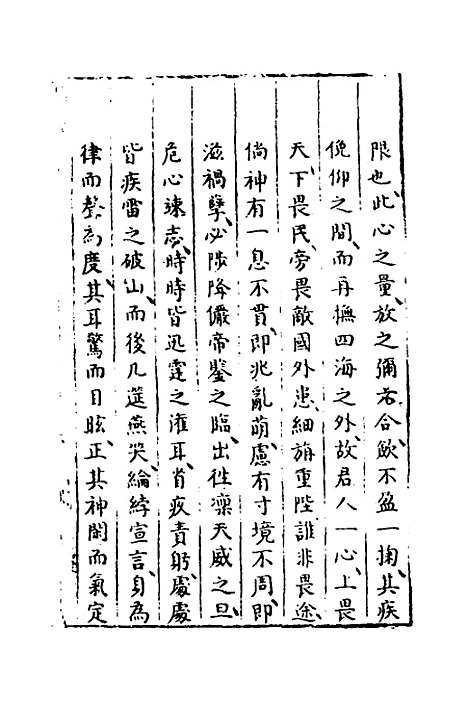 限也此心之量放之彌六合歛不盈一掬其疾
俛仰之間而再撫四海之外故君人一心上畏
天下畏民旁畏敵國外患細旃重陛誰非畏途
倘神有一息不貫即兆亂萌慮有寸境不周即
滋禍孽必陟降儼帝鑒之臨出徃凜天威之旦
危心竦志時時皆迅霆之漼耳省疚責躬處處
皆疾雷之破山而後几筵燕笑綸綍宣言身為
律而聲為度其耳驚而目眩正其神閒而氣定